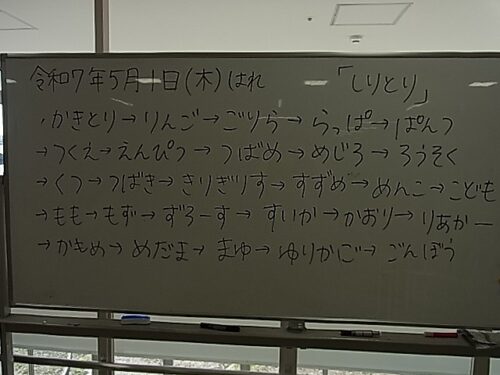 令和7年5月1日(木)はれ 「しりとり」
・かきとり→りんご→ごりら→らっぱ→ぱんつ
→つくえ→えんぴつ→つばめ→めじろ→ろうそく
→くつ→つばき→きりぎりす→すずめ→めんこ→こども
→もも→もず→ずろーす→すいか→かおり→りあかー
→かもめ→めだま→まゆ→ゆりかご→ごんぼう